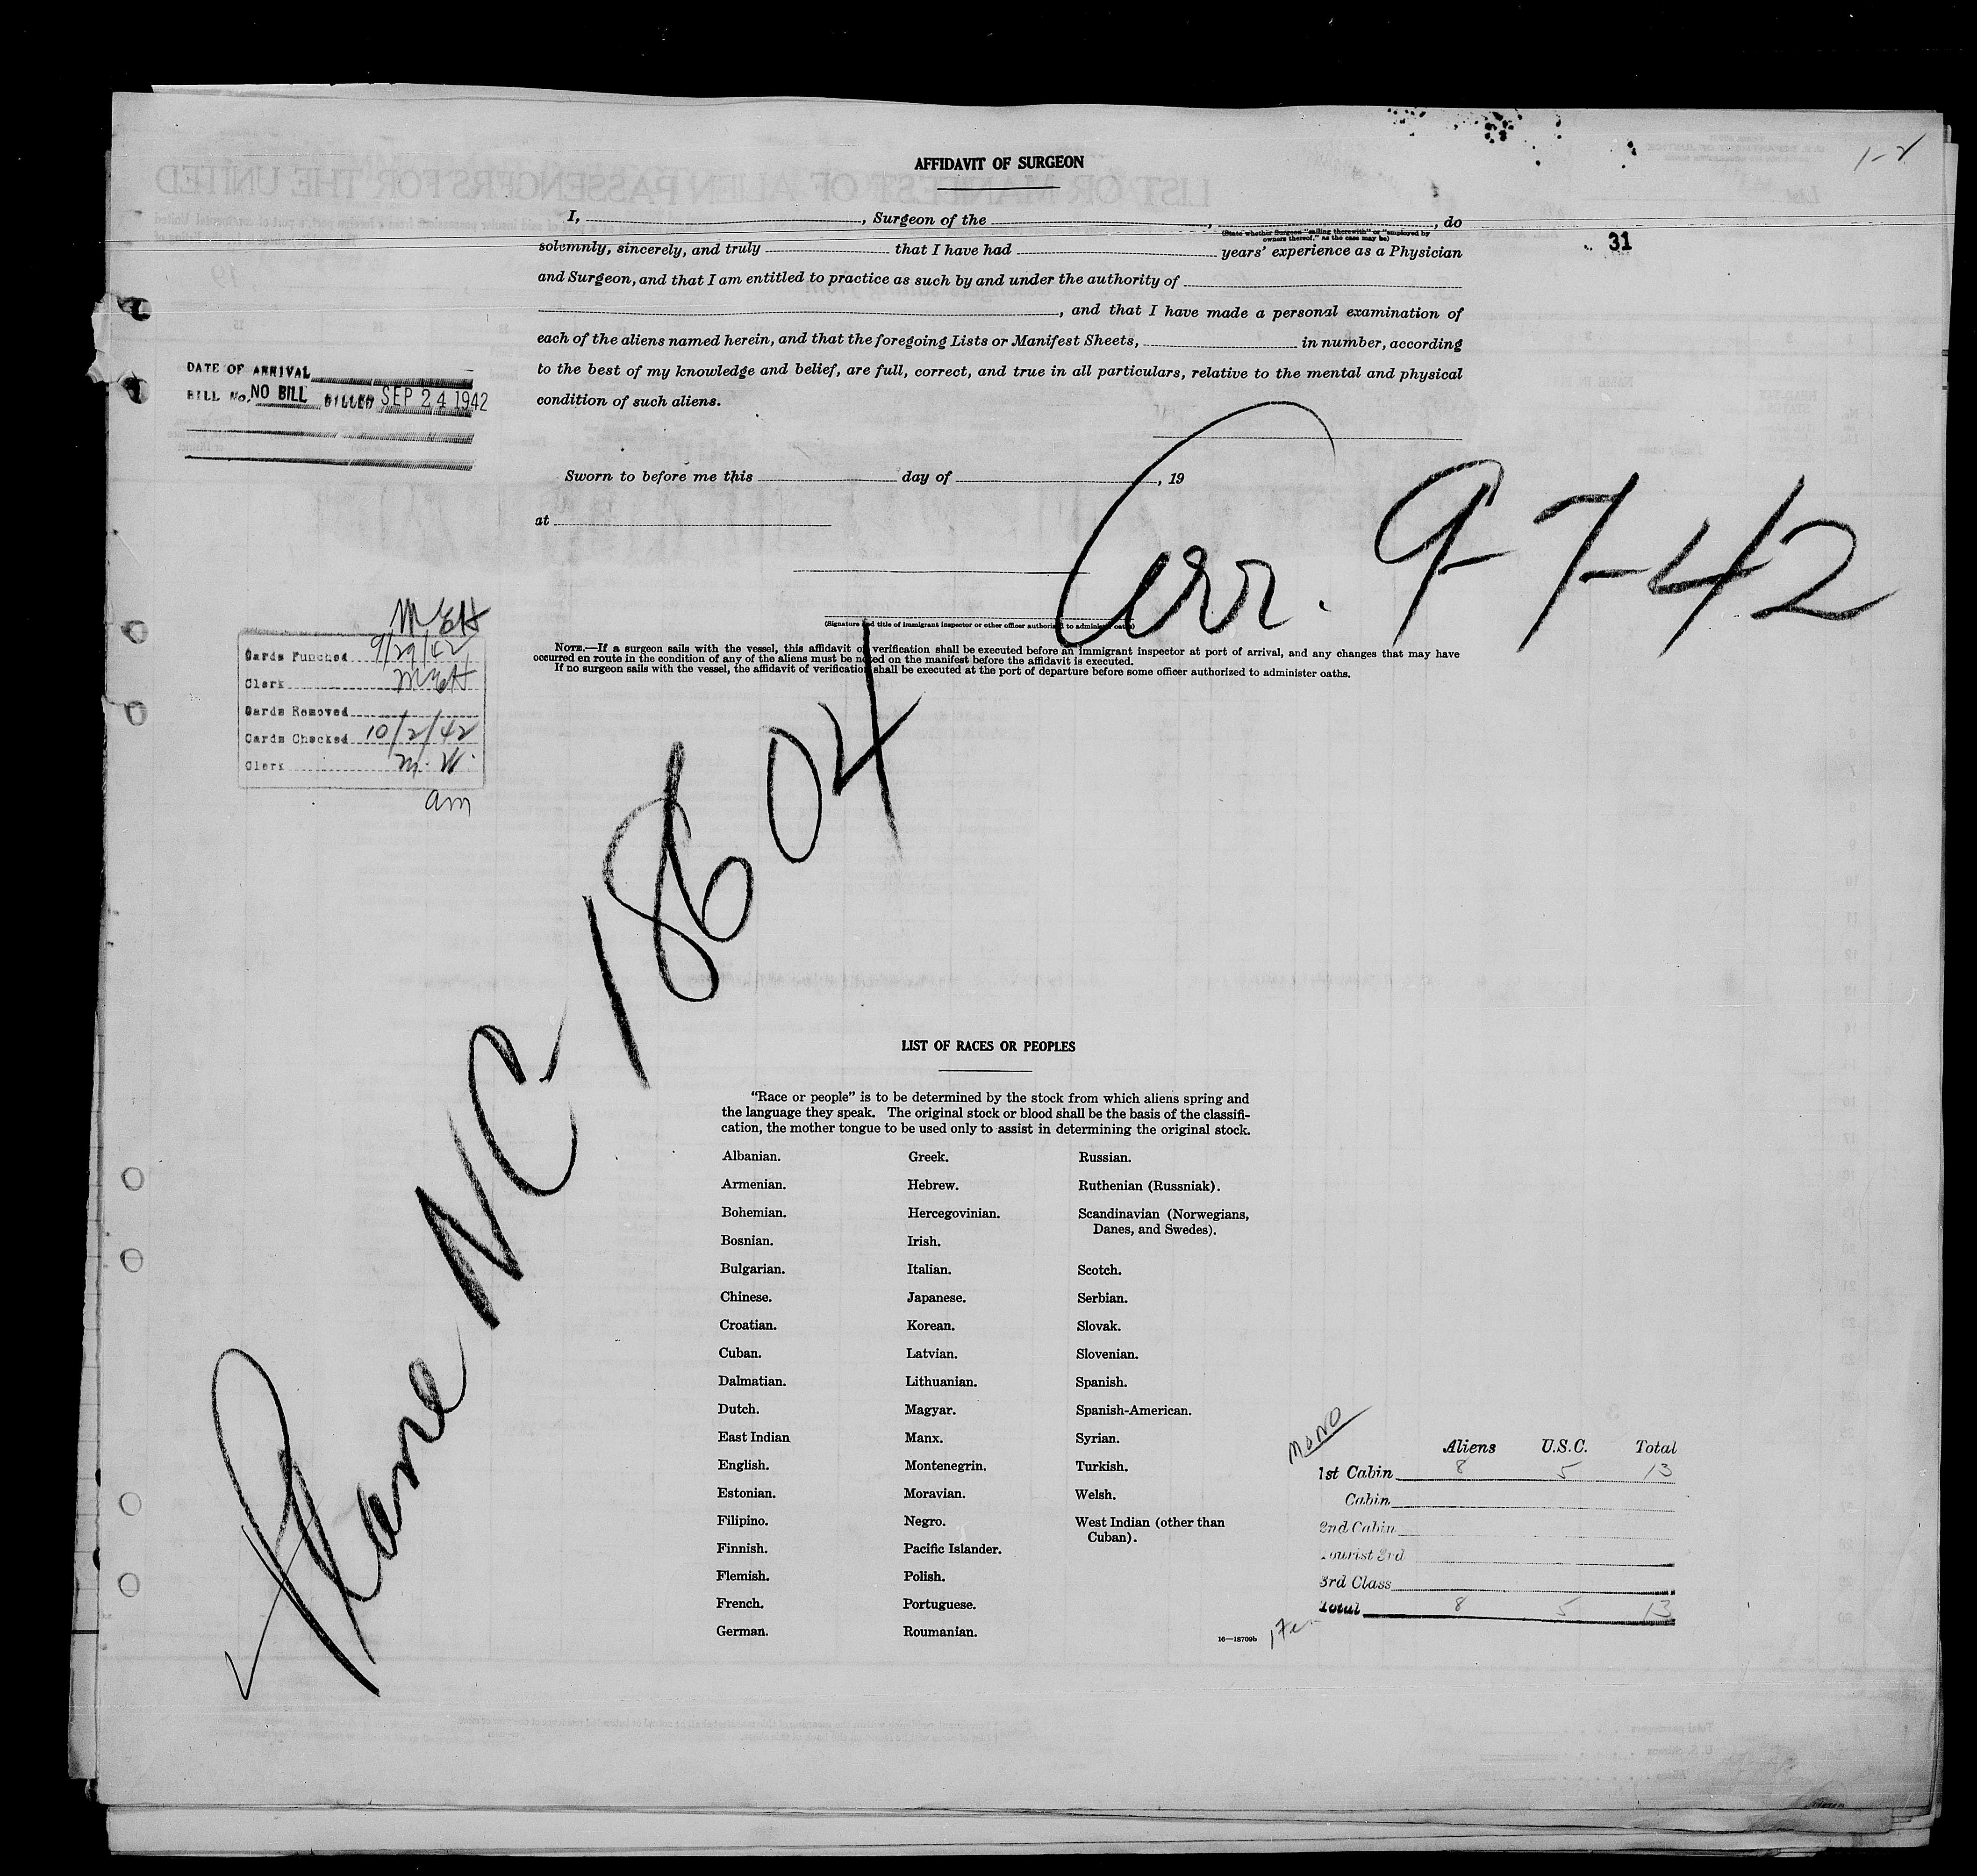 1-2
AFFIDAVIT OF SURGEON
I, , Surgeon of the , , do
(State whether Surgeon "sailing therewith" or "employed by
owners thereof," as the case may be)
31
solemnly, sincerely, and truly that I have had years' experience as a Physician
and Surgeon, and that I am entitled to practice as such by and under the authority of
, and that I have made a personal examination of
each of the aliens named herein, and that the foregoing Lists or Manifest Sheets, in number, according
to the best of my knowledge and belief, are full, correct, and true in all particulars, relative to the mental and physical
condition of such aliens.
DATE OF ARRIVAL
BILL No. NO BILL BILLED SEP 24 1942
Sworn to before me this day of , 19
at
Arr. 9-7-42
(Signature and title of immigrant inspector or other officer authorized to administer oaths)
NOTE.—If a surgeon sails with the vessel, this affidavit of verification shall be executed before an immigrant inspector at port of arrival, and any changes that may have
occurred en route in the condition of any of the aliens must be noted on the manifest before the affidavit is executed.
If no surgeon sails with the vessel, the affidavit of verification shall be executed at the port of departure before some officer authorized to administer oaths.
Cards Punched 9/29/42
Clerk
Cards Removed
Cards Checked 10/2/42
Clerk M. W.
am
Plane NC-18604
LIST OF RACES OR PEOPLES
"Race or people" is to be determined by the stock from which aliens spring and
the language they speak. The original stock or blood shall be the basis of the classifi-
cation, the mother tongue to be used only to assist in determining the original stock.
Albanian.
Armenian.
Bohemian.
Bosnian.
Bulgarian.
Chinese.
Croatian.
Cuban.
Dalmatian.
Dutch.
East Indian
English.
Estonian.
Filipino.
Finnish.
Flemish.
French.
German.
Greek.
Hebrew.
Hercegovinian.
Irish.
Italian.
Japanese.
Korean.
Latvian.
Lithuanian.
Magyar.
Manx.
Montenegrin.
Moravian.
Negro.
Pacific Islander.
Polish.
Portuguese.
Roumanian.
Russian.
Ruthenian (Russniak).
Scandinavian (Norwegians,
Danes, and Swedes).
Scotch.
Serbian.
Slovak.
Slovenian.
Spanish.
Spanish-American.
Syrian.
Turkish.
Welsh.
West Indian (other than
Cuban).
16—18709b
MONO
Aliens U.S.C. Total
1st Cabin 8 5 13
Cabin
2nd Cabin
Tourist 3rd
3rd Class
Total 8 5 13